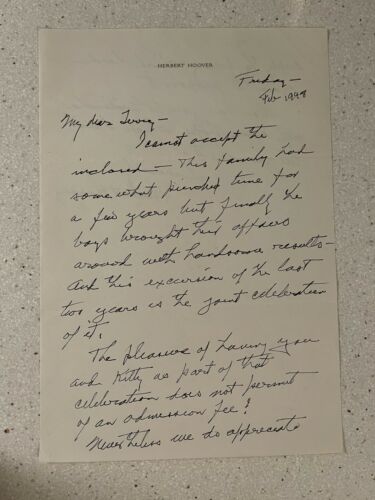 HERBERT HOOVER
Friday —
Feb 1948
My dear
I cannot accept the
inclosed — This family had
some what pinched time for
a few years but finally the
boys brought their affairs
around with handsome results —
and this excursion of the last
two years is the joint celebration
of it.
The pleasure of having you
and Kitty as part of that
celebration does not permit
of an admission fee!
Nevertheless we do appreciate